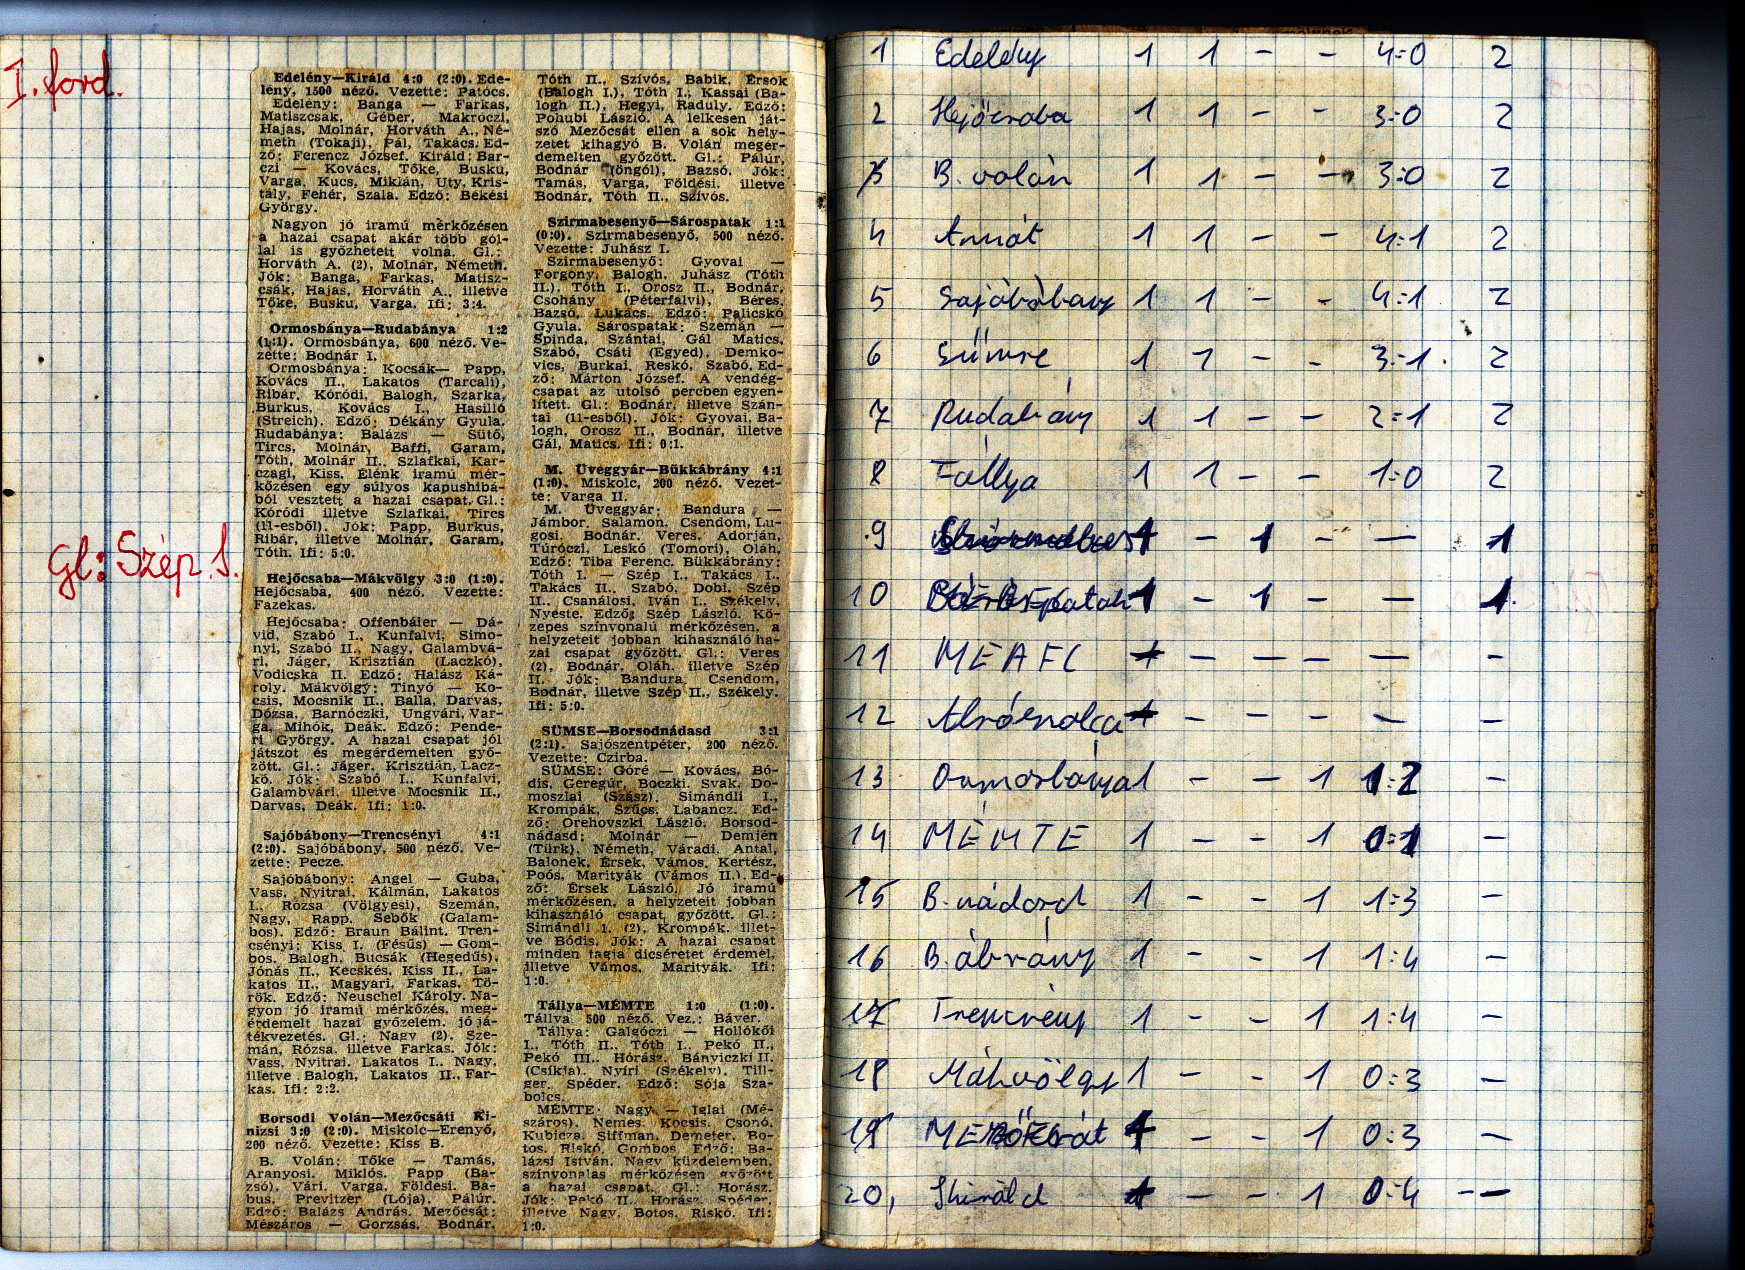 I. ford.
Edelény—Királd 4:0 (2:0). Ede-
lény, 1500 néző. Vezette: Patócs.
Edelény: Banga — Farkas,
Matiszcsak, Géber, Makróczi,
Hajas, Molnár, Horváth A., Né-
meth (Tokaji), Pál, Takács. Ed-
ző: Ferencz József. Királd: Bar-
czi — Kovács, Tőke, Busku,
Varga, Kucs, Miklán, Uty, Kris-
tály, Fehér, Szala. Edző: Békési
György.
Nagyon jó iramú mérkőzésen
a hazai csapat akár több gól-
lal is győzhetett volna. Gl.:
Horváth A. (2), Molnár, Németh.
Jók: Banga, Farkas, Matisz-
csák, Hajas, Horváth A., illetve
Tőke, Busku, Varga. Ifi: 3:4.
Ormosbánya—Rudabánya 1:2
(1:1). Ormosbánya, 600 néző. Ve-
zette: Bodnár I.
Ormosbánya: Kocsák— Papp,
Kovács II., Lakatos (Tarcali),
Ribár, Kóródi, Balogh, Szarka,
Burkus, Kovács I., Hasilló
(Streich). Edző: Dékány Gyula.
Rudabánya: Balázs — Sütő,
Tircs, Molnár, Baffi, Garam,
Tóth, Molnár II., Szlafkai, Kar-
czagi, Kiss. Élénk iramú mér-
kőzésen egy súlyos kapushibá-
ból vesztett a hazai csapat. Gl.:
Kóródi illetve Szlafkai, Tircs
(11-esből). Jók: Papp, Burkus,
Ribár, illetve Molnár, Garam,
Tóth. Ifi: 5:0.
Gl: Szép I.
Hejőcsaba—Mákvölgy 3:0 (1:0).
Hejőcsaba, 400 néző. Vezette:
Fazekas.
Hejőcsaba: Offenbáier — Dá-
vid, Szabó I., Kunfalvi, Simo-
nyi, Szabó II., Nagy, Galambvá-
ri, Jáger, Krisztián (Laczkó),
Vodicska II. Edző: Halász Ká-
roly. Mákvölgy: Tinyó — Ko-
csis, Mocsnik II., Balla, Darvas,
Dózsa, Barnóczki, Ungvári, Var-
ga, Mihók, Deák. Edző: Pende-
ri György. A hazai csapat jól
játszot és megérdemelten győ-
zött. Gl.: Jáger, Krisztián, Lacz-
kó. Jók: Szabó I., Kunfalvi,
Galambvári, illetve Mocsnik II.,
Darvas, Deák. Ifi: 1:0.
Sajóbábony—Trencsényi 4:1
(2:0). Sajóbábony, 500 néző. Ve-
zette: Pecze.
Sajóbábony: Angel — Guba,
Vass, Nyitrai, Kálmán, Lakatos
I., Rózsa (Völgyesi), Szemán,
Nagy, Rapp, Sebők (Galam-
bos). Edző: Braun Bálint. Tren-
csényi: Kiss I. (Fésűs) — Gom-
bos, Balogh, Bucsák (Hegedűs),
Jónás II., Kecskés, Kiss II., La-
katos II., Magyari, Farkas, Tö-
rök. Edző: Neuschel Károly. Na-
gyon jó iramú mérkőzés, meg-
érdemelt hazai győzelem, jó já-
tékvezetés. Gl.: Nagy (2), Sze-
mán, Rózsa, illetve Farkas. Jók:
Vass, Nyitrai, Lakatos I., Nagy,
illetve Balogh, Lakatos II., Far-
kas. Ifi: 2:2.
Borsodi Volán—Mezőcsáti Ki-
nizsi 3:0 (2:0). Miskolc—Erenyő,
200 néző. Vezette: Kiss B.
B. Volán: Tőke — Tamás,
Aranyosi, Miklós, Papp (Ba-
zsó), Vári, Varga, Földesi, Ba-
bus, Previtzer (Lója), Pálúr.
Edző: Balázs András. Mezőcsát:
Mészáros — Gorzsás, Bodnár,
Tóth II., Szívós, Babik, Érsok
(Balogh I.), Tóth I., Kassai (Ba-
logh II.), Hegyi, Raduly. Edző:
Pohubi László. A lelkesen ját-
szó Mezőcsát ellen a sok hely-
zetet kihagyó B. Volán megér-
demelten győzött. Gl.: Pálúr,
Bodnár (öngól), Bazsó. Jók:
Tamás, Varga, Földesi, illetve
Bodnár, Tóth II., Szívós.
Szirmabesenyő—Sárospatak 1:1
(0:0). Szirmabesenyő, 500 néző.
Vezette: Juhász I.
Szirmabesenyő: Gyovai —
Forgony, Balogh, Juhász (Tóth
II.), Tóth I., Orosz II., Bodnár,
Csohány (Péterfalvi), Béres,
Bazsó, Lukács. Edző: Palicskó
Gyula. Sárospatak: Szemán —
Spinda, Szántai, Gál Matics,
Szabó, Csáti (Egyed), Demko-
vics, Burkai, Reskó, Szabó. Ed-
ző: Márton József. A vendég-
csapat az utolsó percben egyen-
lített. Gl.: Bodnár, illetve Szán-
tai (11-esből). Jók: Gyovai, Ba-
logh, Orosz II., Bodnár, illetve
Gál, Matics. Ifi: 0:1.
M. Üveggyár—Bükkábrány 4:1
(1:0). Miskolc, 200 néző. Vezet-
te: Varga II.
M. Üveggyár: Bandura —
Jámbor, Salamon, Csendom, Lu-
gosi, Bodnár, Veres, Adorján,
Túróczi, Leskó (Tomori), Oláh.
Edző: Tiba Ferenc. Bükkábrány:
Tóth I. — Szép I., Takács I.,
Takács II., Szabó, Dobi, Szép
II., Csanálosi, Iván I., Székely,
Nyeste. Edző: Szép László. Kö-
zepes színvonalú mérkőzésen, a
helyzeteit jobban kihasználó ha-
zai csapat győzött. Gl.: Veres
(2), Bodnár, Oláh, illetve Szép
II. Jók: Bandura, Csendom,
Bodnár, illetve Szép II., Székely.
Ifi: 5:0.
SÜMSE—Borsodnádasd 3:1
(2:1). Sajószentpéter, 200 néző.
Vezette: Czirba.
SÜMSE: Góré — Kovács, Bó-
dis, Geregúr, Boczki, Svak, Do-
moszlai (Szász), Simándli I.,
Krompák, Szűcs, Labancz. Ed-
ző: Orehovszki László. Borsod-
nádasd: Molnár — Demjén
(Türk), Németh, Váradi, Antal,
Balonek, Érsek, Vámos, Kertész,
Poós, Marityák (Vámos II.). Ed-
ző: Érsek László. Jó iramú
mérkőzésen, a helyzeteit jobban
kihasználó csapat győzött. Gl.:
Simándli I. (2), Krompák, illet-
ve Bódis. Jók: A hazai csapat
minden tagja dicséretet érdemel,
illetve Vámos, Marityák. Ifi:
1:0.
Tállya—MÉMTE 1:0 (1:0).
Tállya 500 néző. Vez.: Báver.
Tállya: Galgóczi — Hollókői
I., Tóth II., Tóth I., Pekó II.,
Pekó III., Hórász, Bányiczki II.
(Csíkja), Nyíri (Székely), Till-
ger, Spéder. Edző: Sója Sza-
bolcs.
MÉMTE: Nagy — Iglai (Mé-
száros), Nemes, Kocsis, Csonó,
Kubicza, Siffman, Demeter, Bo-
tos, Riskó, Gombos. Edző: Ba-
lázsi István. Nagy küzdelemben,
színvonalas mérkőzésen győzött
a hazai csapat. Gl.: Horász.
Jók: Pekó II., Horász, Spéder,
illetve Nagy, Botos, Riskó. Ifi:
1:0.
1 Edelény 1 1 - - 4:0 2
2 Hejőcsaba 1 1 - - 3:0 2
3 B. volán 1 1 - - 3:0 2
4 1 1 - - 4:1 2
5 Sajóbábony 1 1 - - 4:1 2
6 Sümse 1 1 - - 3:1 2
7 Rudabány 1 1 - - 2:1 2
8 Tállya 1 1 - - 1:0 2
9 1 - 1 - — 1
10 1 - 1 - — 1
11 MEAFC - - - - -
12 Alsózsolca - - - - -
13 Ormosbánya 1 - - 1 1:2 -
14 MÉMTE 1 - - 1 0:1 -
15 B. nádasd 1 - - 1 1:3 -
16 B. ábrány 1 - - 1 1:4 -
17 Trencsény 1 - - 1 1:4 -
18 Mákvölgy 1 - - 1 0:3 -
19 Mezőcsát 1 - - 1 0:3 -
20, Királd 1 - - 1 0:4 -